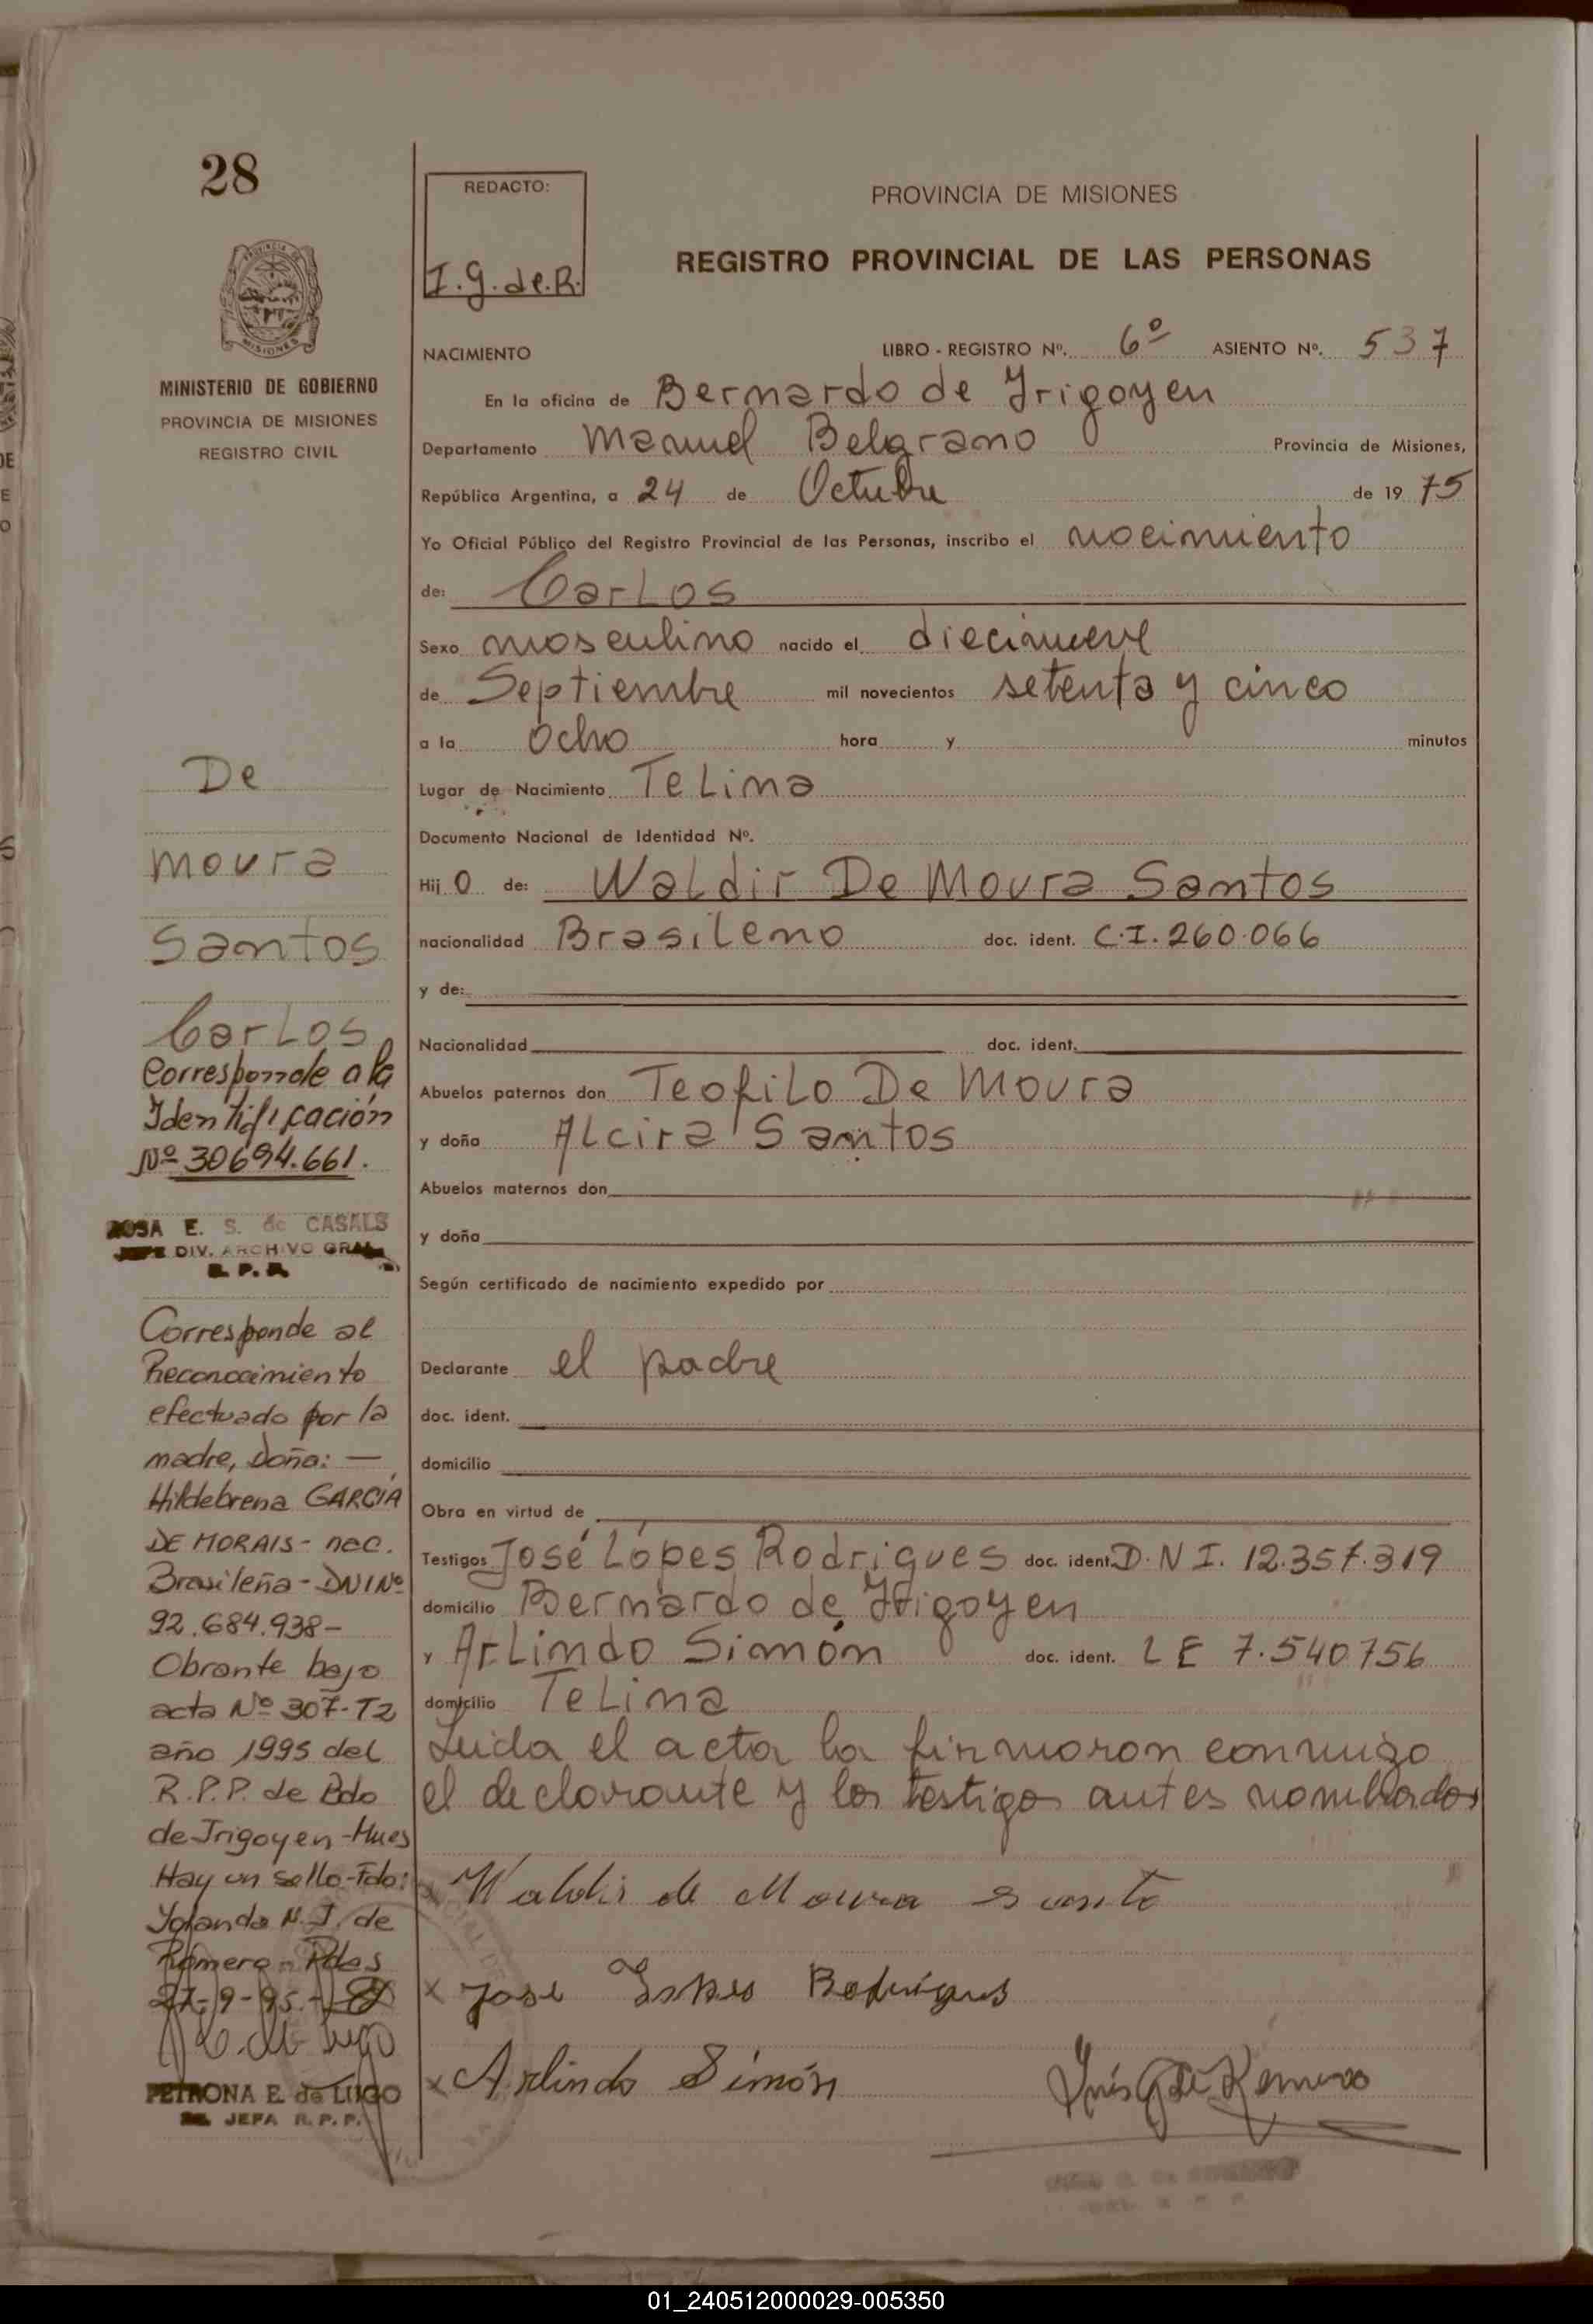 28
MINISTERIO DE GOBIERNO
PROVINCIA DE MISIONES
REGISTRO CIVIL
De
Moura
Santos
Carlos
Corresponde a la
Identificación
Nº 30694.661.
ROSA E. S. de CASALS
JEFE DIV. ARCHIVO GRAL
R. P. P.
Corresponde al
Reconocimiento
efectuado por la
madre, Doña: —
Hildebrena GARCIA
DE MORAIS - nac.
Brasileña - DNI Nº
92.684.938-
Obrante bajo
acta Nº 307-T2
año 1995 del
R.P.P. de Bdo
de Irigoyen - Mnes
Hay un sello - Fdo:
Yolanda N. J. de
Romero - Pdas
27-9-95.-
PETRONA E. de LUGO
JEFA R. P. P.
REDACTO:
I.G. de R.
PROVINCIA DE MISIONES
REGISTRO PROVINCIAL DE LAS PERSONAS
NACIMIENTO LIBRO - REGISTRO Nº. 6º ASIENTO Nº. 537
En la oficina de Bernardo de Irigoyen
Departamento Manuel Belgrano Provincia de Misiones,
República Argentina, a 24 de Octubre de 19 75
Yo Oficial Público del Registro Provincial de las Personas, inscribo el nacimiento
de: Carlos
Sexo masculino nacido el diecinueve
de Septiembre mil novecientos setenta y cinco
a la ocho hora y minutos
Lugar de Nacimiento TeLina
Documento Nacional de Identidad Nº.
Hij o de: Waldir De Moura Santos
nacionalidad Brasileno doc. ident. C.I. 260.066
y de:
Nacionalidad doc. ident.
Abuelos paternos don Teofilo De Moura
y doña Alcira Santos
Abuelos maternos don
y doña
Según certificado de nacimiento expedido por
Declarante el padre
doc. ident.
domicilio
Obra en virtud de
Testigos José Lópes Rodrigues doc. ident. D.N I. 12.357.319
domicilio Bernardo de Irigoyen
y Arlindo Simón doc. ident. L E 7.540756
domicilio TeLina
Leida el acta la firmaron conmigo
el declarante y los testigos antes nombrados
Waldir de Moura Santo
x José Lopes Rodrigues
x Arlindo Simón
Inés G de Romero
01_240512000029-005350